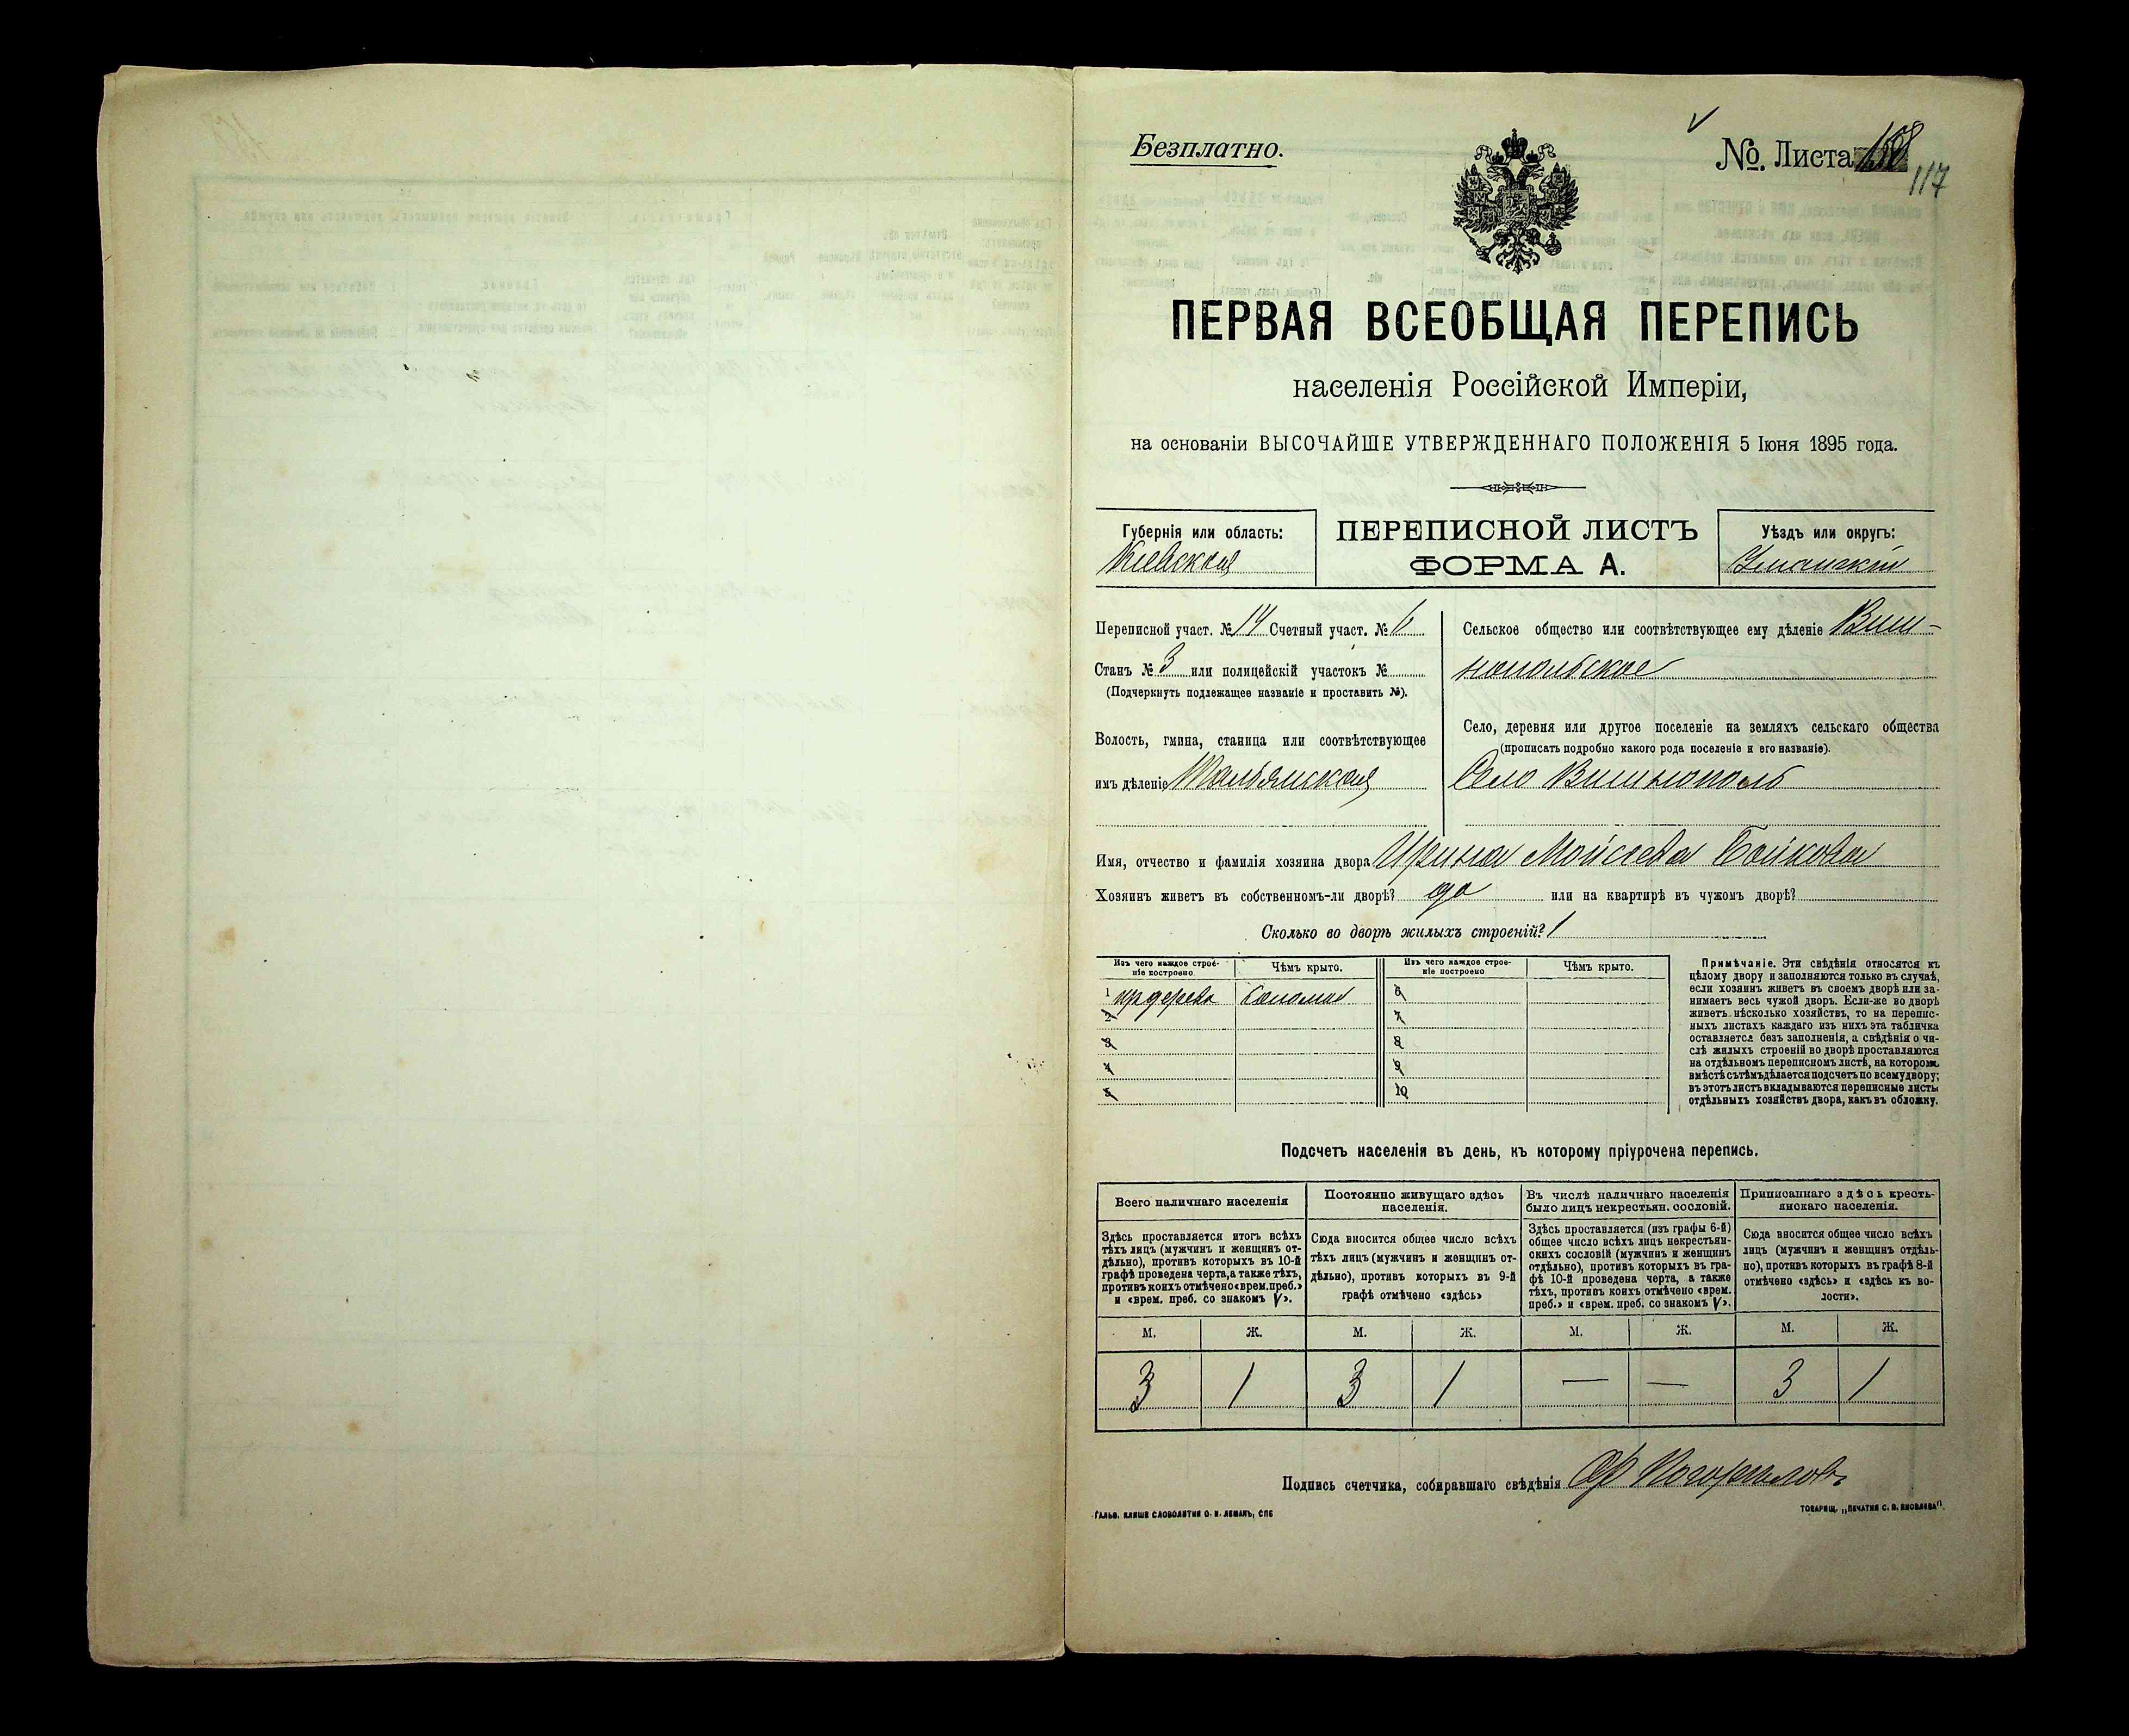 Безплатно.
№. Листа 158
117
ПЕРВАЯ ВСЕОБЩАЯ ПЕРЕПИСЬ
населенія Россійской Имперіи,
на основаніи ВЫСОЧАЙШЕ УТВЕРЖДЕННАГО ПОЛОЖЕНІЯ 5 Іюня 1895 года.
Губернія или область:
Кіевская
ПЕРЕПИСНОЙ ЛИСТЪ
ФОРМА А.
Уѣздъ или округъ:
Уманскій
Переписной участ. № 14 Счетный участ. № 6
Станъ № 3 или полицейскій участокъ №
(Подчеркнуть подлежащее названіе и проставить №).
Волость, гмина, станица или соотвѣтствующее
имъ дѣленіе
Сельское общество или соотвѣтствующее ему дѣленіе Виш-
нопольское
Село, деревня или другое поселеніе на земляхъ сельскаго общества
(прописать подробно какого рода поселеніе и его названіе).
Село Вишнополь
Имя, отчество и фамилія хозяина двора Ирина Мойсеева Бойкова
Хозяинъ живетъ въ собственномъ-ли дворѣ? да или на квартирѣ въ чужомъ дворѣ?
Сколько во дворѣ жилыхъ строеній? 1
Изъ чего каждое строе-
ніе построено
Чѣмъ крыто.
Изъ чего каждое строе-
ніе построено
Чѣмъ крыто.
1 изъ дерева соломой 6
2 7
3 8
4 9
5 10
Примѣчаніе. Эти свѣдѣнія относятся къ
цѣлому двору и заполняются только въ случаѣ,
если хозяинъ живетъ въ своемъ дворѣ или за-
нимаетъ весь чужой дворъ. Если-же во дворѣ
живетъ нѣсколько хозяйствъ, то на перепис-
ныхъ листахъ каждаго изъ нихъ эта табличка
оставляется безъ заполненія, а свѣдѣнія о чи-
слѣ жилыхъ строеній во дворѣ проставляются
на отдѣльномъ переписномъ листѣ, на которомъ
вмѣстѣ съ тѣмъ дѣлается подсчетъ по всему двору;
въ этотъ листъ вкладываются переписные листы
отдѣльныхъ хозяйствъ двора, какъ въ обложку.
Подсчетъ населенія въ день, къ которому пріурочена перепись.
Всего наличнаго населенія
Здѣсь проставляется итогъ всѣхъ
тѣхъ лицъ (мужчинъ и женщинъ от-
дѣльно), противъ которыхъ въ 10-й
графѣ проведена черта, а также тѣхъ,
противъ коихъ отмѣчено «врем. преб.»
и «врем. преб. со знакомъ V».
Постоянно живущаго здѣсь
населенія.
Сюда вносится общее число всѣхъ
тѣхъ лицъ (мужчинъ и женщинъ от-
дѣльно), противъ которыхъ въ 9-й
графѣ отмѣчено «здѣсь»
Въ числѣ наличнаго населенія
было лицъ некрестьян. сословій.
Здѣсь проставляется (изъ графы 6-й)
общее число всѣхъ лицъ некрестьян-
скихъ сословій (мужчинъ и женщинъ
отдѣльно), противъ которыхъ въ гра-
фѣ 10-й проведена черта, а также
тѣхъ, противъ коихъ отмѣчено «врем.
преб.» и «врем. преб. со знакомъ V».
Приписаннаго здѣсь кресть-
янскаго населенія.
Сюда вносится общее число всѣхъ
лицъ (мужчинъ и женщинъ отдѣль-
но), противъ которыхъ въ графѣ 8-й
отмѣчено «здѣсь» и «здѣсь къ во-
лости».
М. Ж. М. Ж. М. Ж. М. Ж.
3 1 3 1 — — 3 1
Подпись счетчика, собиравшаго свѣдѣнія
ГАЛЬВ. КЛИШЕ СЛОВОЛИТНИ О. И. ЛЕМАНЪ, СПБ
ТОВАРИЩ. „ПЕЧАТНЯ С. П. ЯКОВЛЕВА".